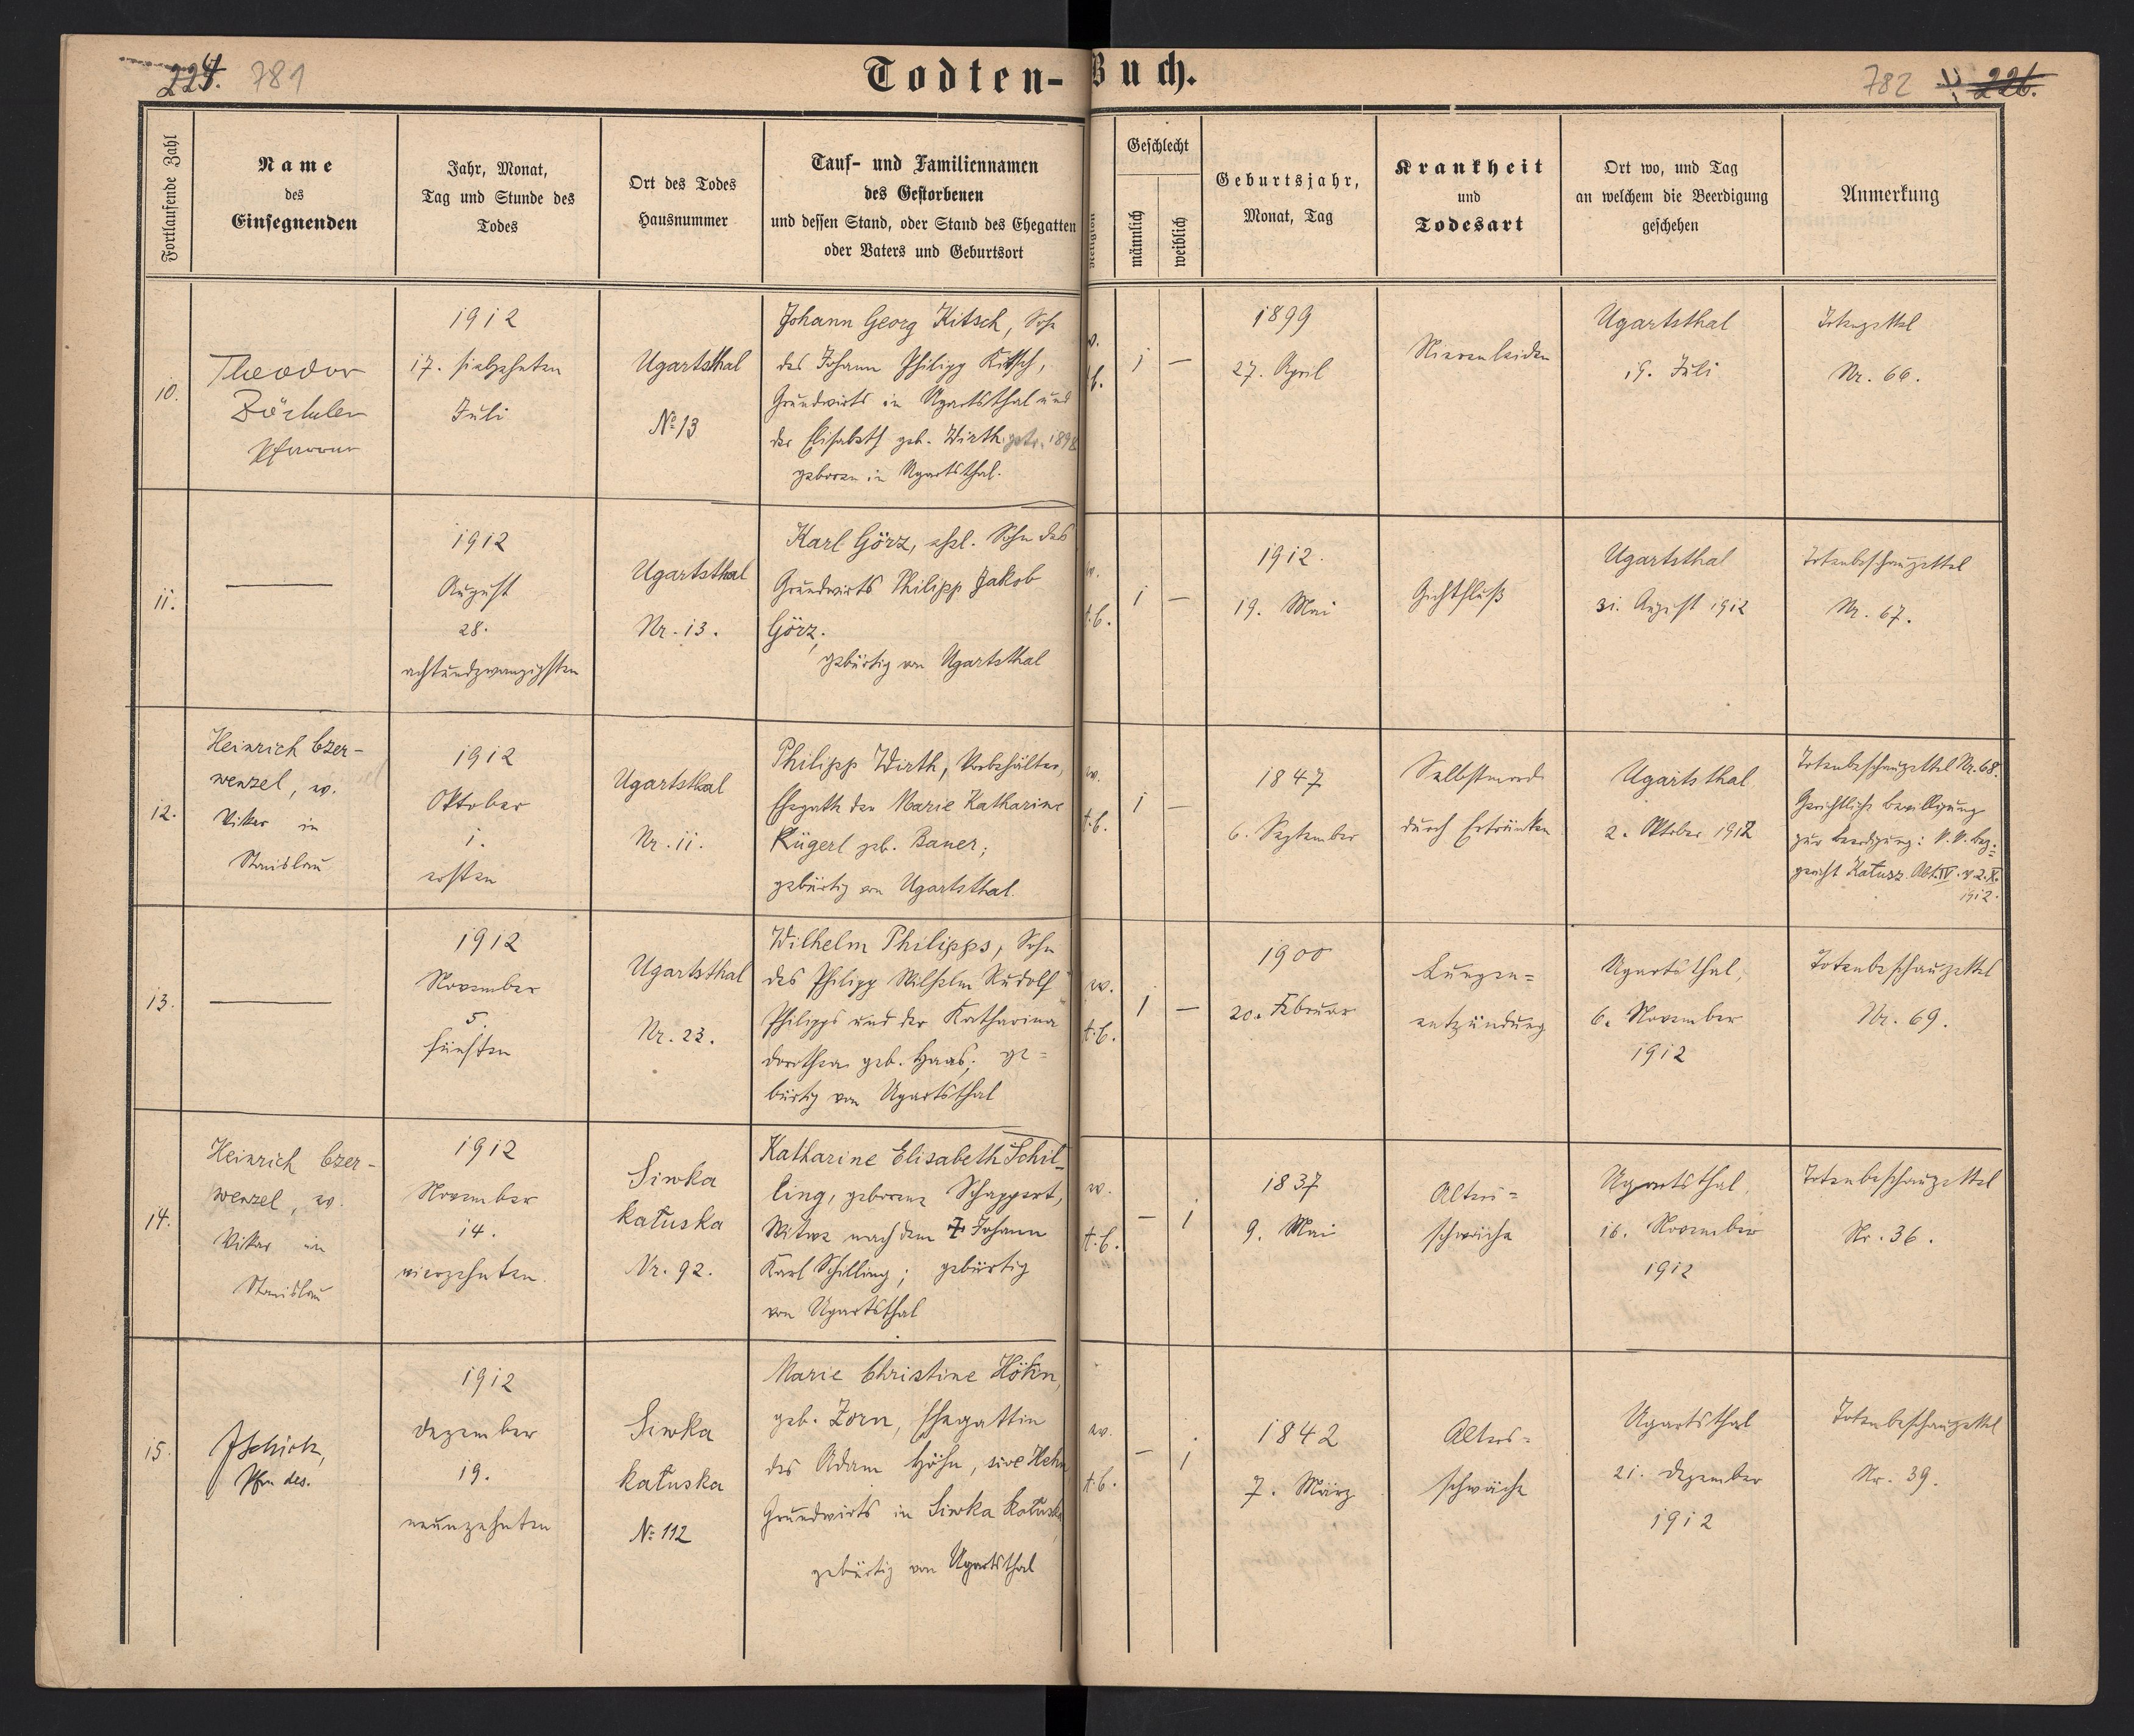 224. 781
Todten-Buch.
782 226.
Fortlaufende Zahl
Name
des
Einsegnenden
Jahr, Monat,
Tag und Stunde des
Todes
Ort des Todes
Hausnummer
Tauf- und Familiennamen
des Gestorbenen
und dessen Stand, oder Stand des Ehegatten
oder Vaters und Geburtsort
Religion
Geschlecht
männlich
weiblich
Geburtsjahr,
Monat, Tag
Krankheit
und
Todesart
Ort wo, und Tag
an welchem die Beerdigung
geschehen
Anmerkung
10.
Theodor
Zöckler
Pfarrer
1912
17. siebzehnten
Juli
Ugartsthal
No 13
Johann Georg Kitsch, Sohn
des Johann Philipp Kitsch,
Grundwirts in Ugartsthal und
der Elisabeth geb. Wirth getr. 1898
geboren in Ugartsthal.
1 —
1899
27. April
Nierenleiden
Ugartsthal
19. Juli
Nr. 66.
11.
—
1912
August
28.
achtundzwanzigsten
Ugartsthal
Nr. 13.
Karl Görz, ehel. Sohn des
Grundwirts Philipp Jakob
Görz;
gebürtig von Ugartsthal
1 —
1912.
19. Mai
Gichtfluß
Ugartsthal
31. August 1912
Totenbeschauzettel
Nr. 67.
12.
Heinrich Czer-
wenzel, ev.
Vikar in
Stanislau
1912
Oktober
1.
ersten
Ugartsthal
Nr. 11.
Philipp Wirth, Vorbehälter,
Ehegatte der Marie Katharine
Rügerl geb. Bauer;
gebürtig von Ugartsthal.
ev.
A.C.
1 —
1847
6. September
Selbstmord
durch Ertränken
Ugartsthal
2. Oktober 1912
Totenbeschauzettel Nr. 68.
Gerichtliche Bewilligung
zur Beerdigung: K.K. Bez.-
gericht Kałusz. Abt. IV. v. 2. X.
1912.
13.
—
1912
November
5.
fünften
Ugartsthal
Nr. 23.
Wilhelm Philipps, Sohn
des Philipp Wilhelm Rudolf
Philipps und der Katharina
Dorothea geb. Haas; ge-
bürtig von Ugartsthal
ev.
A.C.
1 —
1900
20. Februar
Lungen-
entzündung
Ugartsthal,
6. November
1912
Totenbeschauzettel
Nr. 69.
14.
Heinrich Czer-
wenzel, ev.
Vikar in
Stanislau
1912
November
14.
vierzehnten.
Siwka
kałuska
Nr. 92.
Katharine Elisabeth Schil-
ling, geborene Schappert,
Witwe nach dem ✝ Johann
Karl Schilling; gebürtig
von Ugartsthal
ev.
A.C.
— 1
1837
9. Mai
Alters-
schwäche
Ugartsthal,
16. November
1912
Totenbeschauzettel
Nr. 36.
15.
JSchick,
Pfr. des.
1912
Dezember
19.
neunzehnten
Siwka
kałuska
No 112
Marie Christine Höhn,
geb. Zorn, Ehegattin
des Adam Höhn, sive Hehn
Grundwirts in Siwka kałuska,
gebürtig von Ugartsthal
ev.
A.C.
— 1
1842
7. März
Alters-
schwäche
Ugartsthal
21. Dezember
1912
Totenbeschauzettel
Nr. 39.